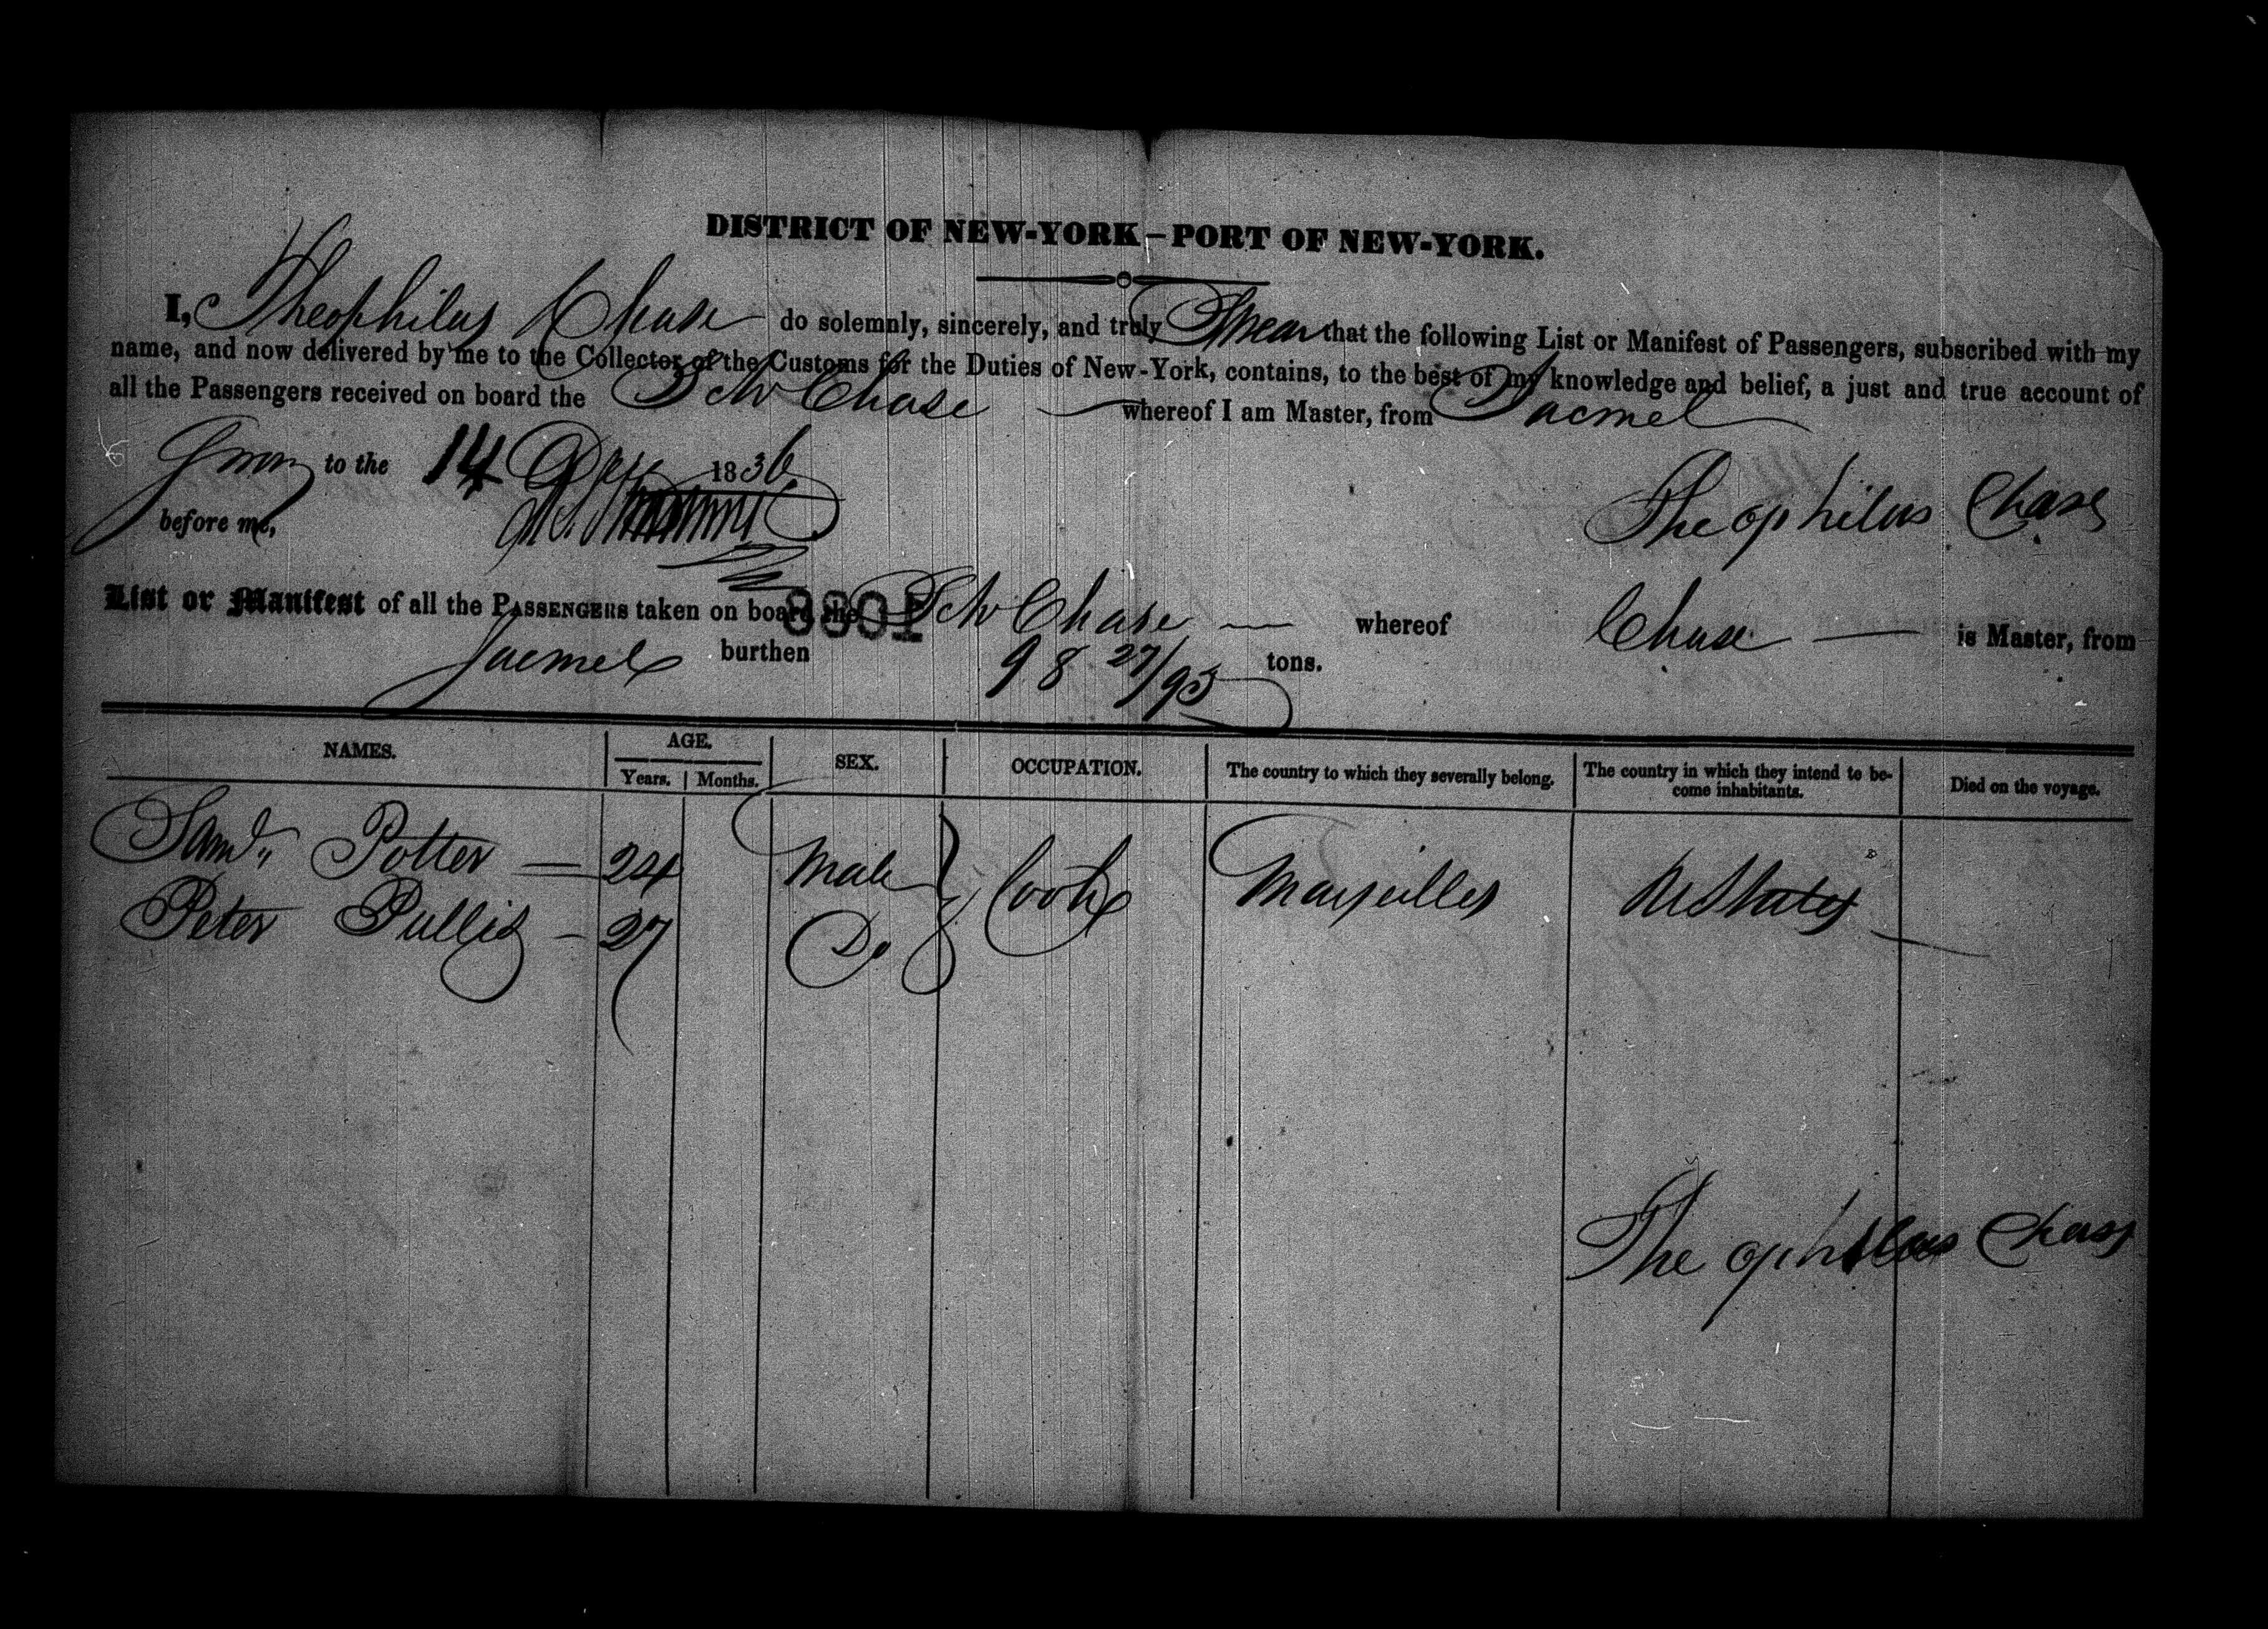 DISTRICT OF NEW-YORK—PORT OF NEW-YORK.
I, Theophilus Chase do solemnly, sincerely, and truly Swear that the following List or Manifest of Passengers, subscribed with my
name, and now delivered by me to the Collector of the Customs for the Duties of New-York, contains, to the best of my knowledge and belief, a just and true account of
all the Passengers received on board the Schr Chase whereof I am Master, from Jacmel
Sworn to the 14 1836
before me, Theophilus Chase
List or Manifest of all the PASSENGERS taken on board the Schr Chase whereof Chase is Master, from
Jacmel burthen 98 27/95 tons.
NAMES. AGE. SEX. OCCUPATION. The country to which they severally belong. The country in which they intend to be-come inhabitants. Died on the voyage.
Years. Months.
Saml. Potter 24 Male Cook Marseilles UStates
Peter Pullis 27 Do
Theophilus Chase